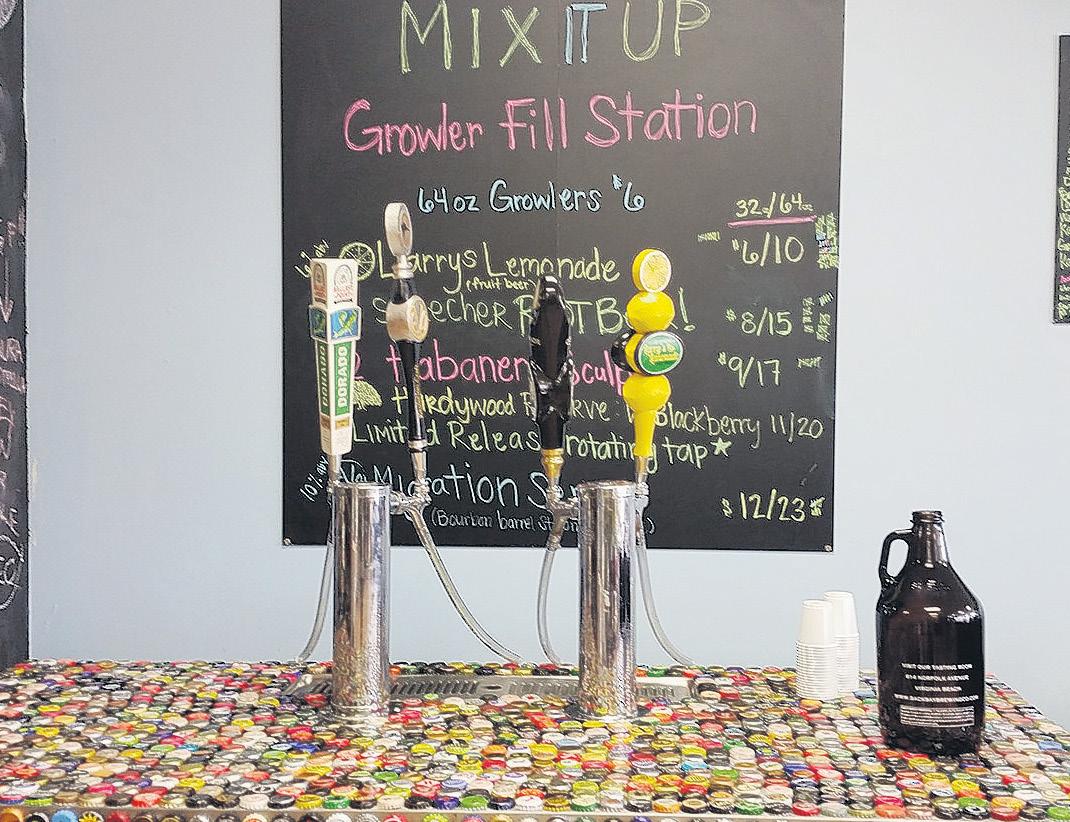 MIX IT UP
Growler Fill Station
64 oz Growlers $6
32oz/64oz
Larrys Lemonade $6/10
(fruit beer)
$8/15
Habanero Sculp $9/17
Hardywood Blackberry 11/20
Limited Release rotating tap*
10% abv
Migration $12/23
(Bourbon barrel
DORADO
VISIT OUR TASTING ROOM
614 NORFOLK AVENUE
VIRGINIA BEACH
WWW.BACKBAYBREWINGCO.COM